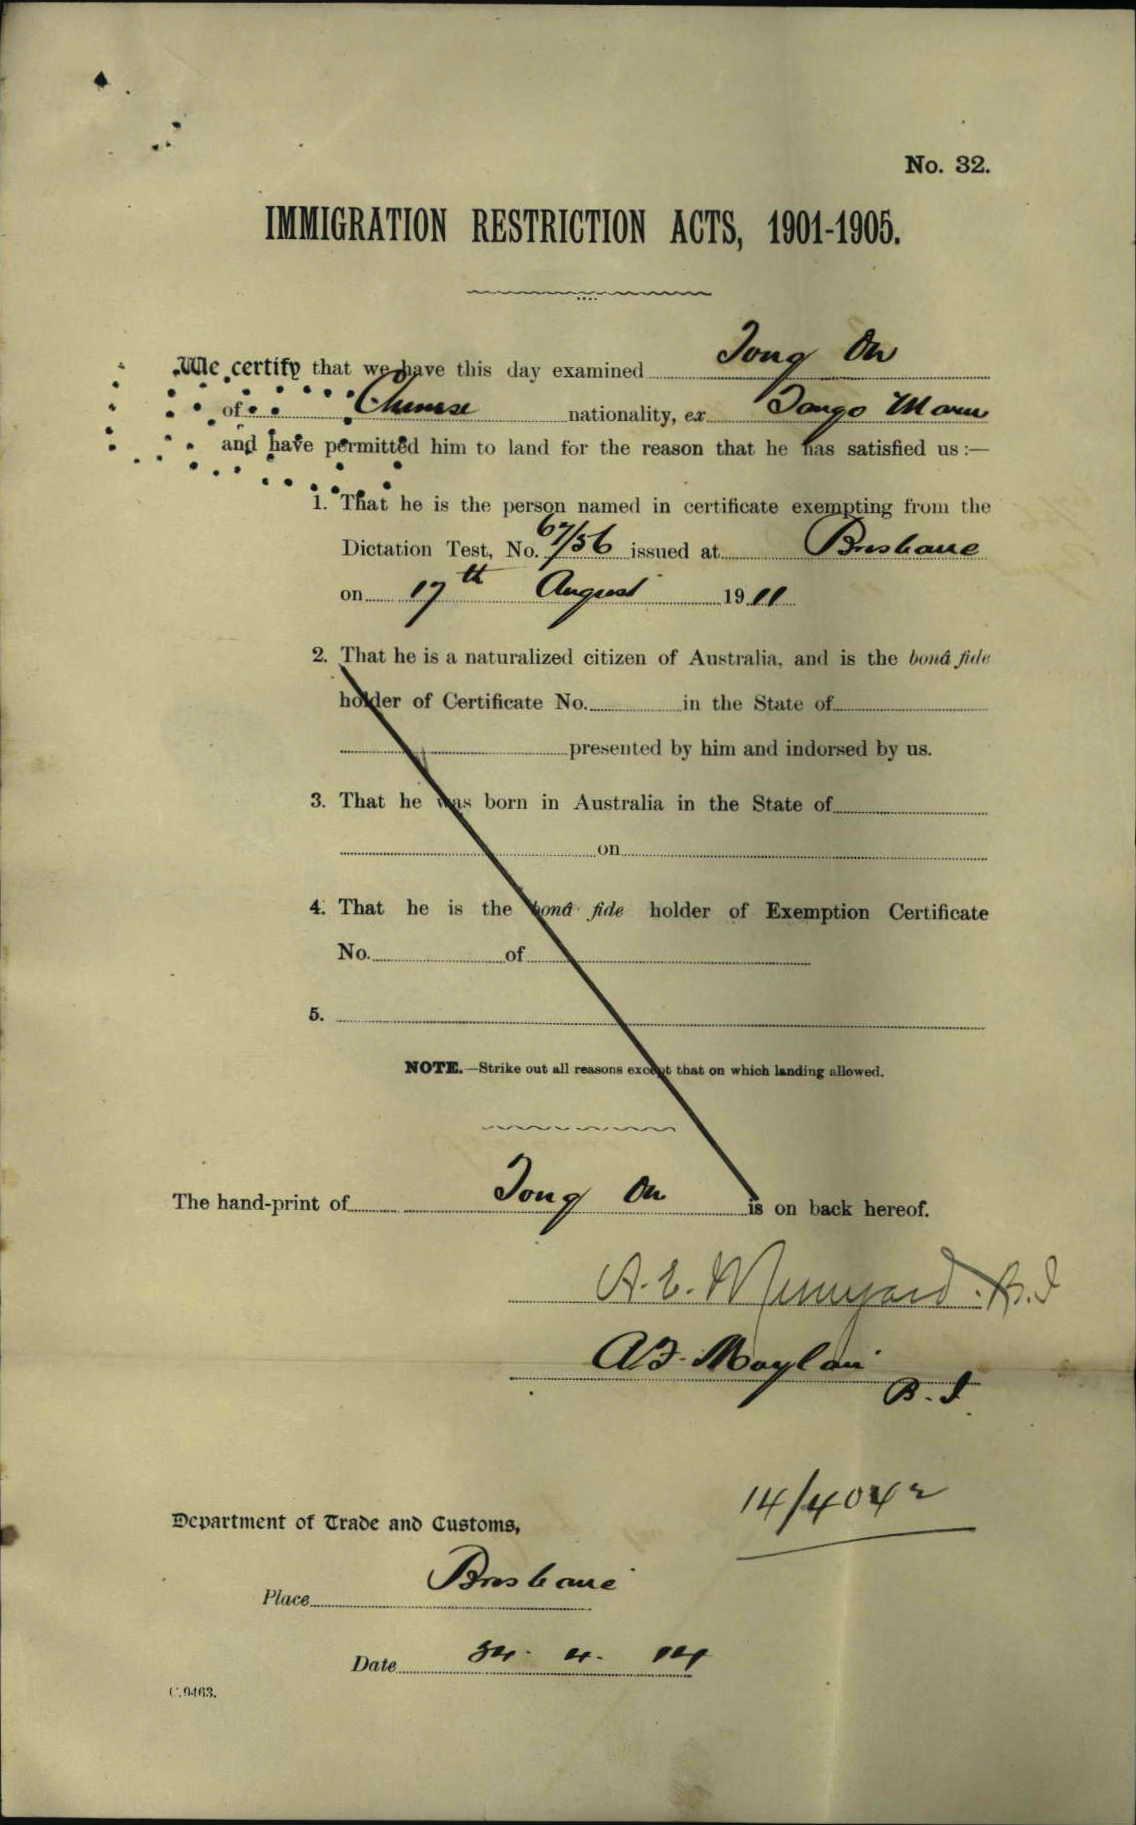 No. 32.
IMMIGRATION RESTRICTION ACTS, 1901-1905.
We certify that we have this day examined Tong On
of Chinese nationality, ex Tango Maru
and have permitted him to land for the reason that he has satisfied us :—
1. That he is the person named in certificate exempting from the
Dictation Test, No. 67/56 issued at Brisbane
on 17th August 1911
2. That he is a naturalized citizen of Australia, and is the bonâ fide
holder of Certificate No. in the State of
presented by him and indorsed by us.
3. That he was born in Australia in the State of
on
4. That he is the bonâ fide holder of Exemption Certificate
No. of
5.
NOTE.—Strike out all reasons except that on which landing allowed.
The hand-print of Tong On is on back hereof.
A. E.
A.F. Moylan
B. I.
14/4042
Department of Trade and Customs,
Place Brisbane
Date 4. 14
C.9463.